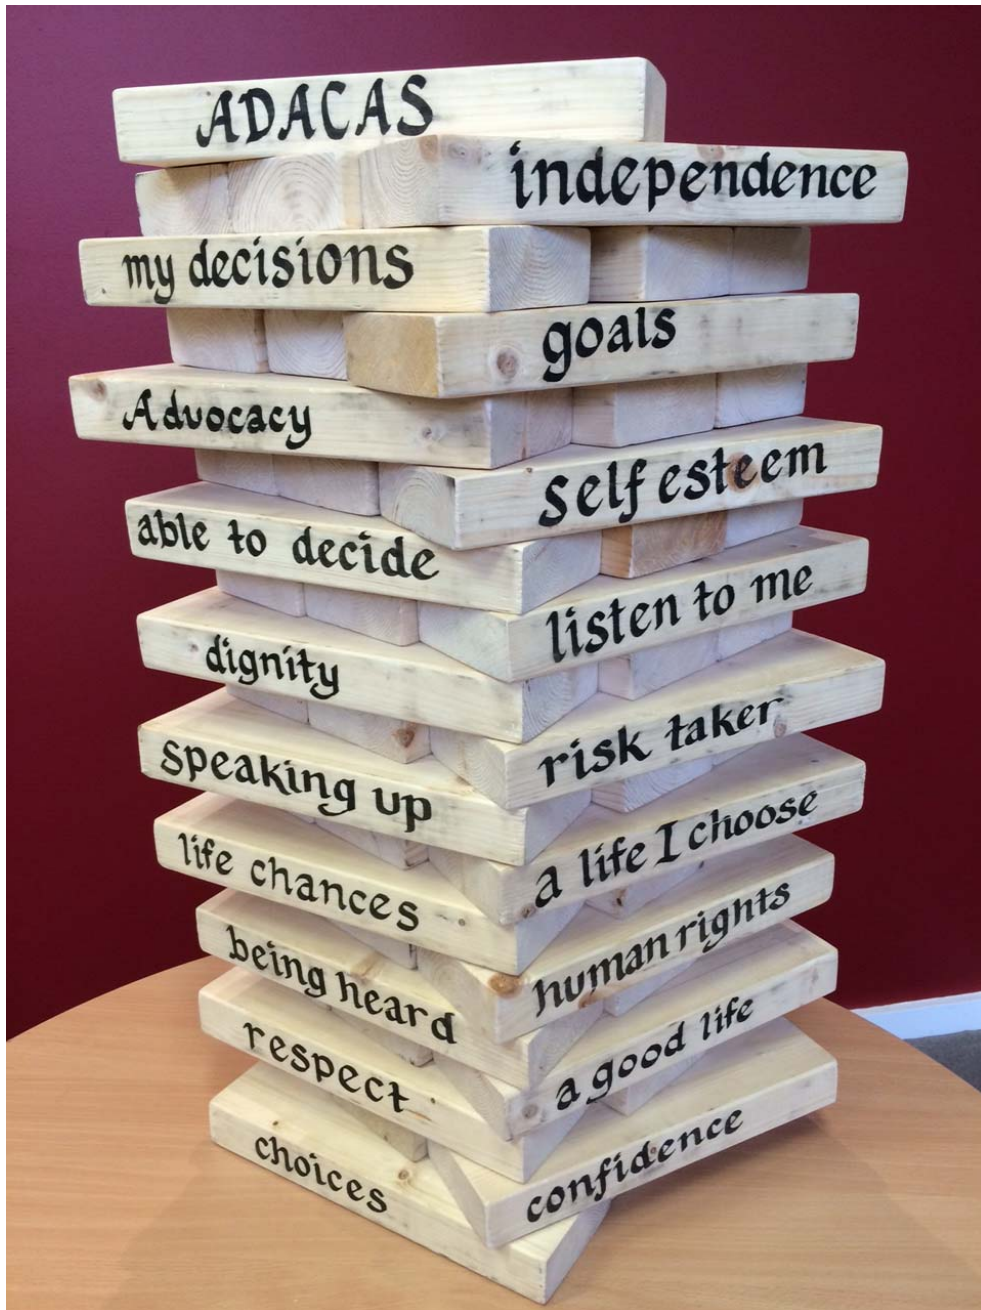 ADACAS
independence
my decisions
goals
Advocacy
self esteem
able to decide
listen to me
dignity
risk taker
speaking up
a life I choose
life chances
human rights
being heard
a good life
respect
confidence
choices